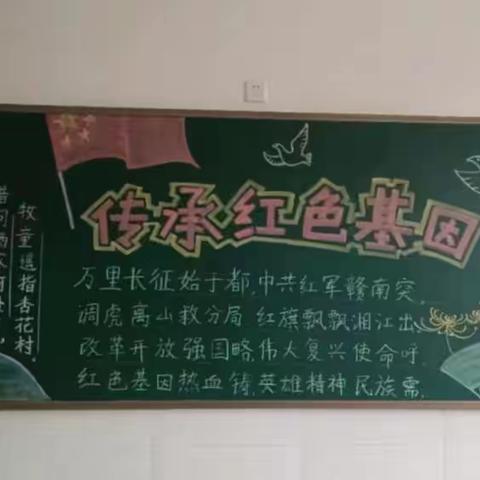 传承红色基因
万里长征始于都,中共红军赣南突,
调虎离山救分局,红旗飘飘湘江出,
改革开放强国略,伟大复兴使命呼,
红色基因热血铸,英雄精神民族需.
借问酒家何处
牧童遥指杏花村.